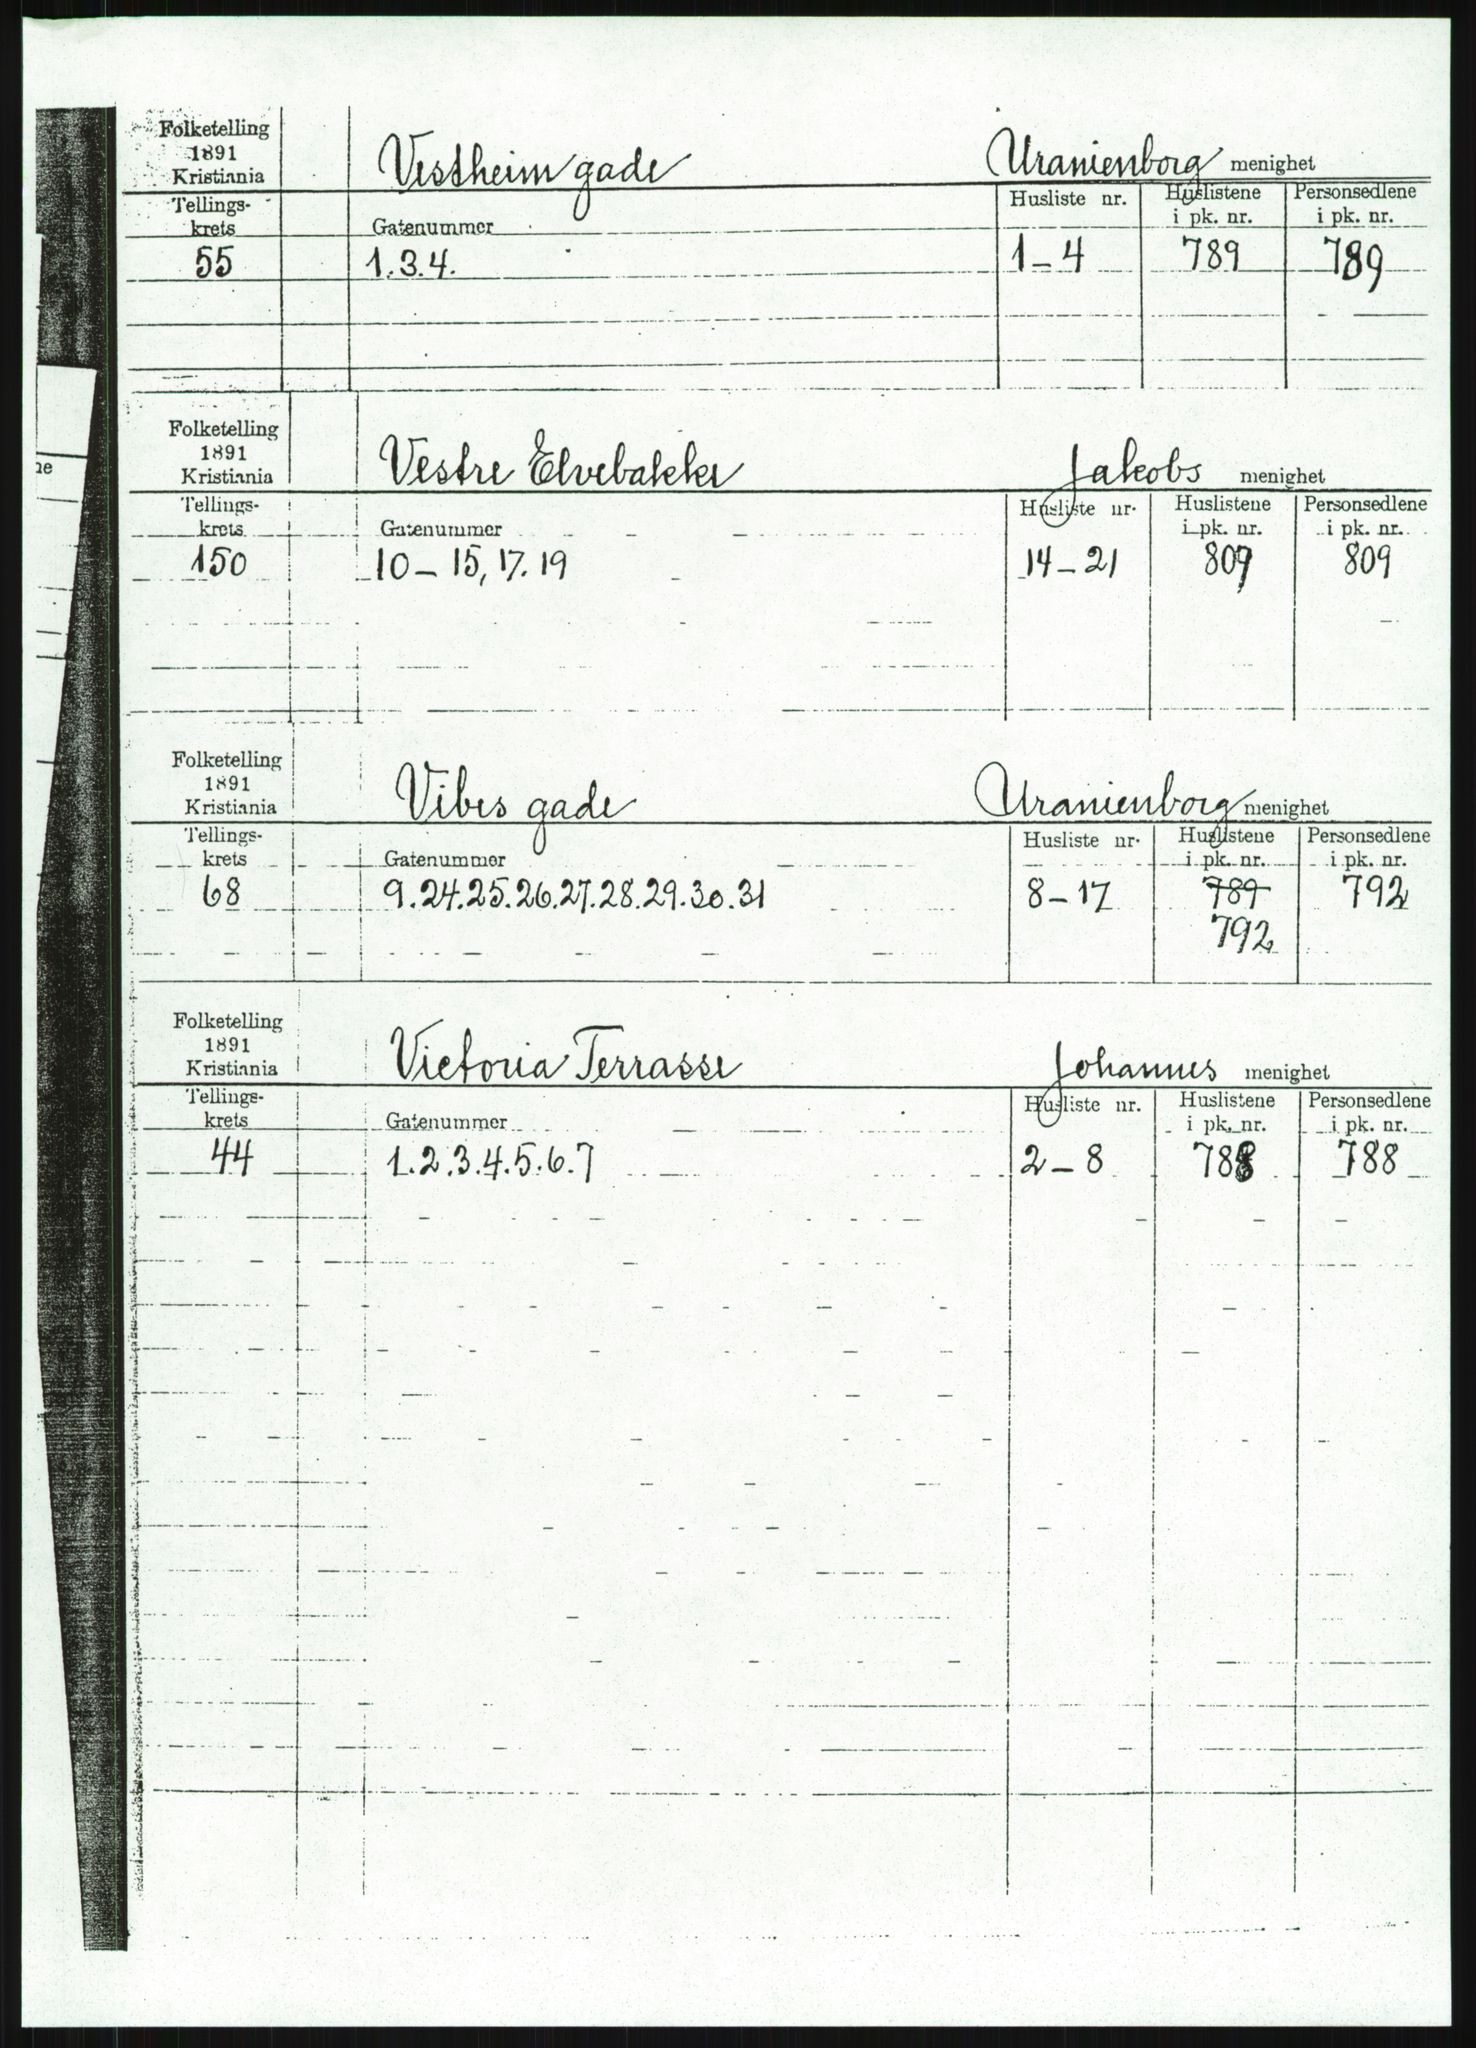 Folketelling
1891
Kristiania
Vestheim gade
Uranienborg menighet
Tellings-
krets
Gatenummer
Husliste nr.
Huslistene
i pk. nr.
Personsedlene
i pk. nr.
55
1.3.4.
1-4
789
789
Folketelling
1891
Kristiania
Vestre Elvebakke
Jakobs menighet
Tellings-
krets
Gatenummer
Husliste nr.
Huslistene
i pk. nr.
Personsedlene
i pk. nr.
150
10-15, 17. 19
14-21
809
809
Folketelling
1891
Kristiania
Vibes gade
Uranienborg menighet
Tellings-
krets
Gatenummer
Husliste nr.
Huslistene
i pk. nr.
Personsedlene
i pk. nr.
68
9.24.25.26.27.28.29.30.31
8-17
789
792
792
Folketelling
1891
Kristiania
Victoria Terrasse
Johannes menighet
Tellings-
krets
Gatenummer
Husliste nr.
Huslistene
i pk. nr.
Personsedlene
i pk. nr.
44
1.2.3.4.5.6.7
2-8
788
788